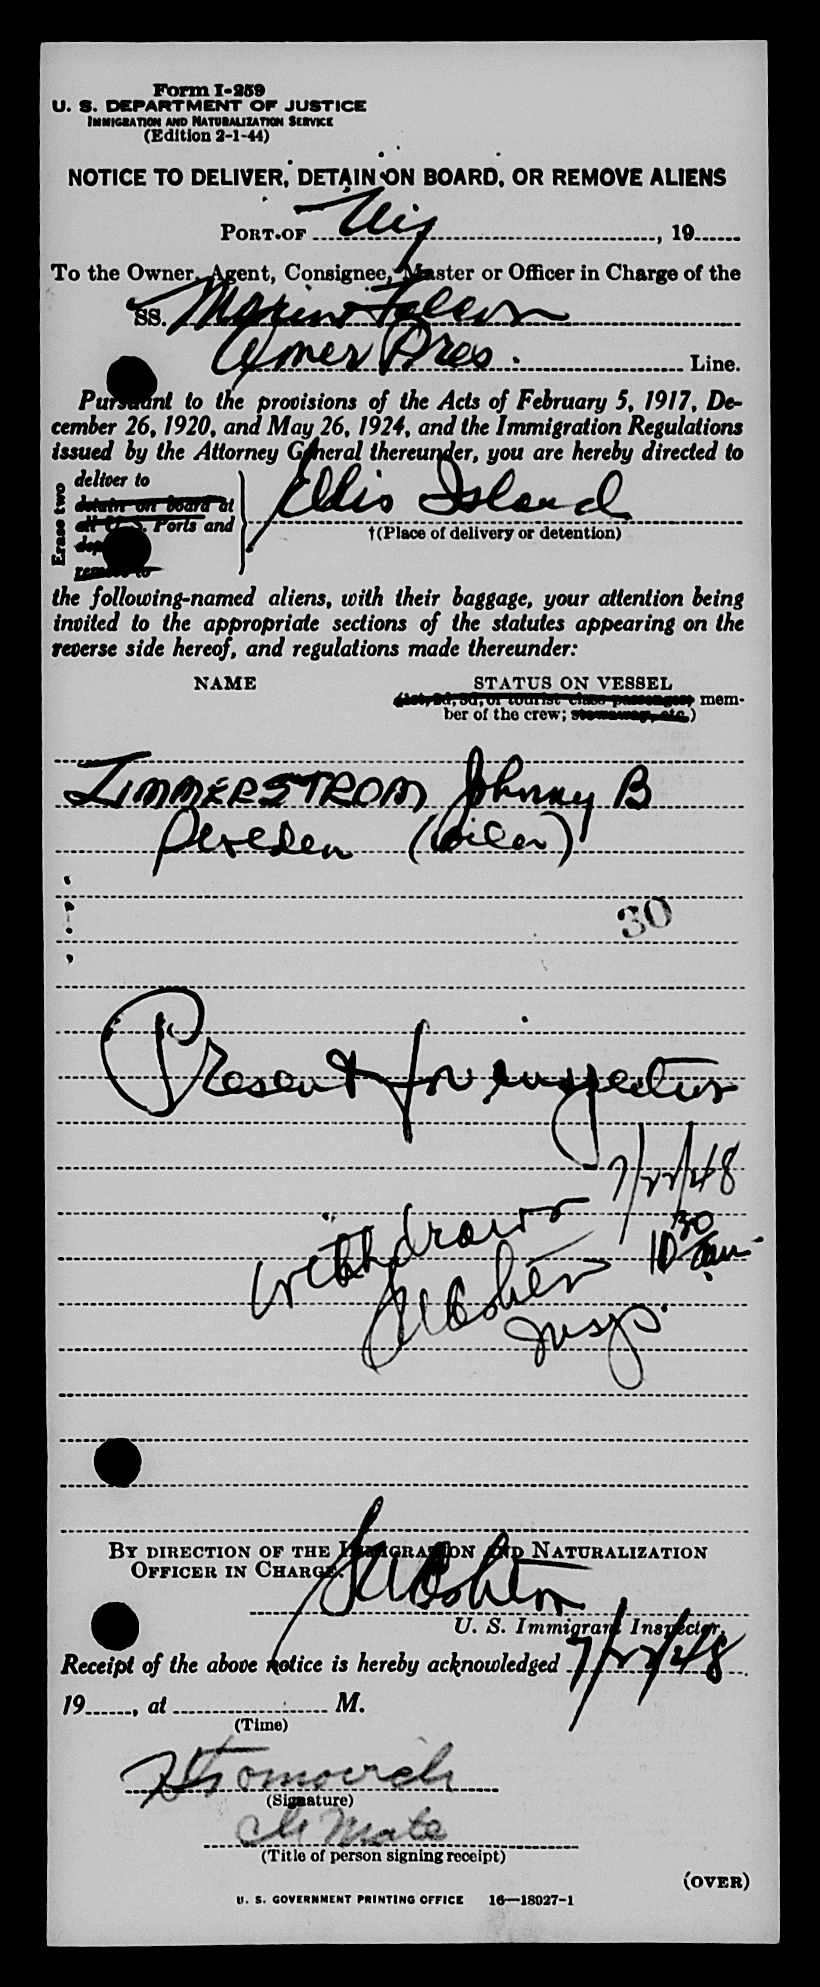 Form I-259
U. S. DEPARTMENT OF JUSTICE
IMMIGRATION AND NATURALIZATION SERVICE
(Edition 2-1-44)
NOTICE TO DELIVER, DETAIN ON BOARD, OR REMOVE ALIENS
PORT OF NY, 19
To the Owner, Agent, Consignee, Master or Officer in Charge of the
SS. Marine Falcon
Amer Pres. Line.
Pursuant to the provisions of the Acts of February 5, 1917, De-
cember 26, 1920, and May 26, 1924, and the Immigration Regulations
issued by the Attorney General thereunder, you are hereby directed to
Erase two
deliver to
detain on board at
all U. S. Ports and
remove to
Ellis Island
†(Place of delivery or detention)
the following-named aliens, with their baggage, your attention being
invited to the appropriate sections of the statutes appearing on the
reverse side hereof, and regulations made thereunder:
NAME STATUS ON VESSEL
(1st, 2d, 3d, or tourist class passenger; mem-
ber of the crew; stowaway, etc.)
ZIMMERSTROM Johnny B
(Oiler)
30
Present for inspection
7/22/48
withdrawn 10 30 am
Insp.
BY DIRECTION OF THE IMMIGRATION AND NATURALIZATION
OFFICER IN CHARGE.
U. S. Immigrant Inspector.
Receipt of the above notice is hereby acknowledged 7/22/48
19, at M.
(Time)
(Signature)
Ch Mate
(Title of person signing receipt)
(OVER)
U. S. GOVERNMENT PRINTING OFFICE 16—18027-1